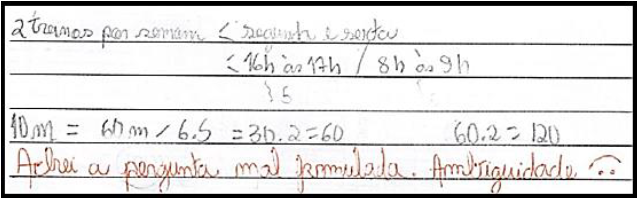 2 treinos por semana < segunda e sexta
< 16h às 17h / 8h às 9h
} 5
10m = 6h m / 6.5 = 30.2 = 60 60.2 = 120
Achei a pergunta mal formulada. Ambiguidade :(